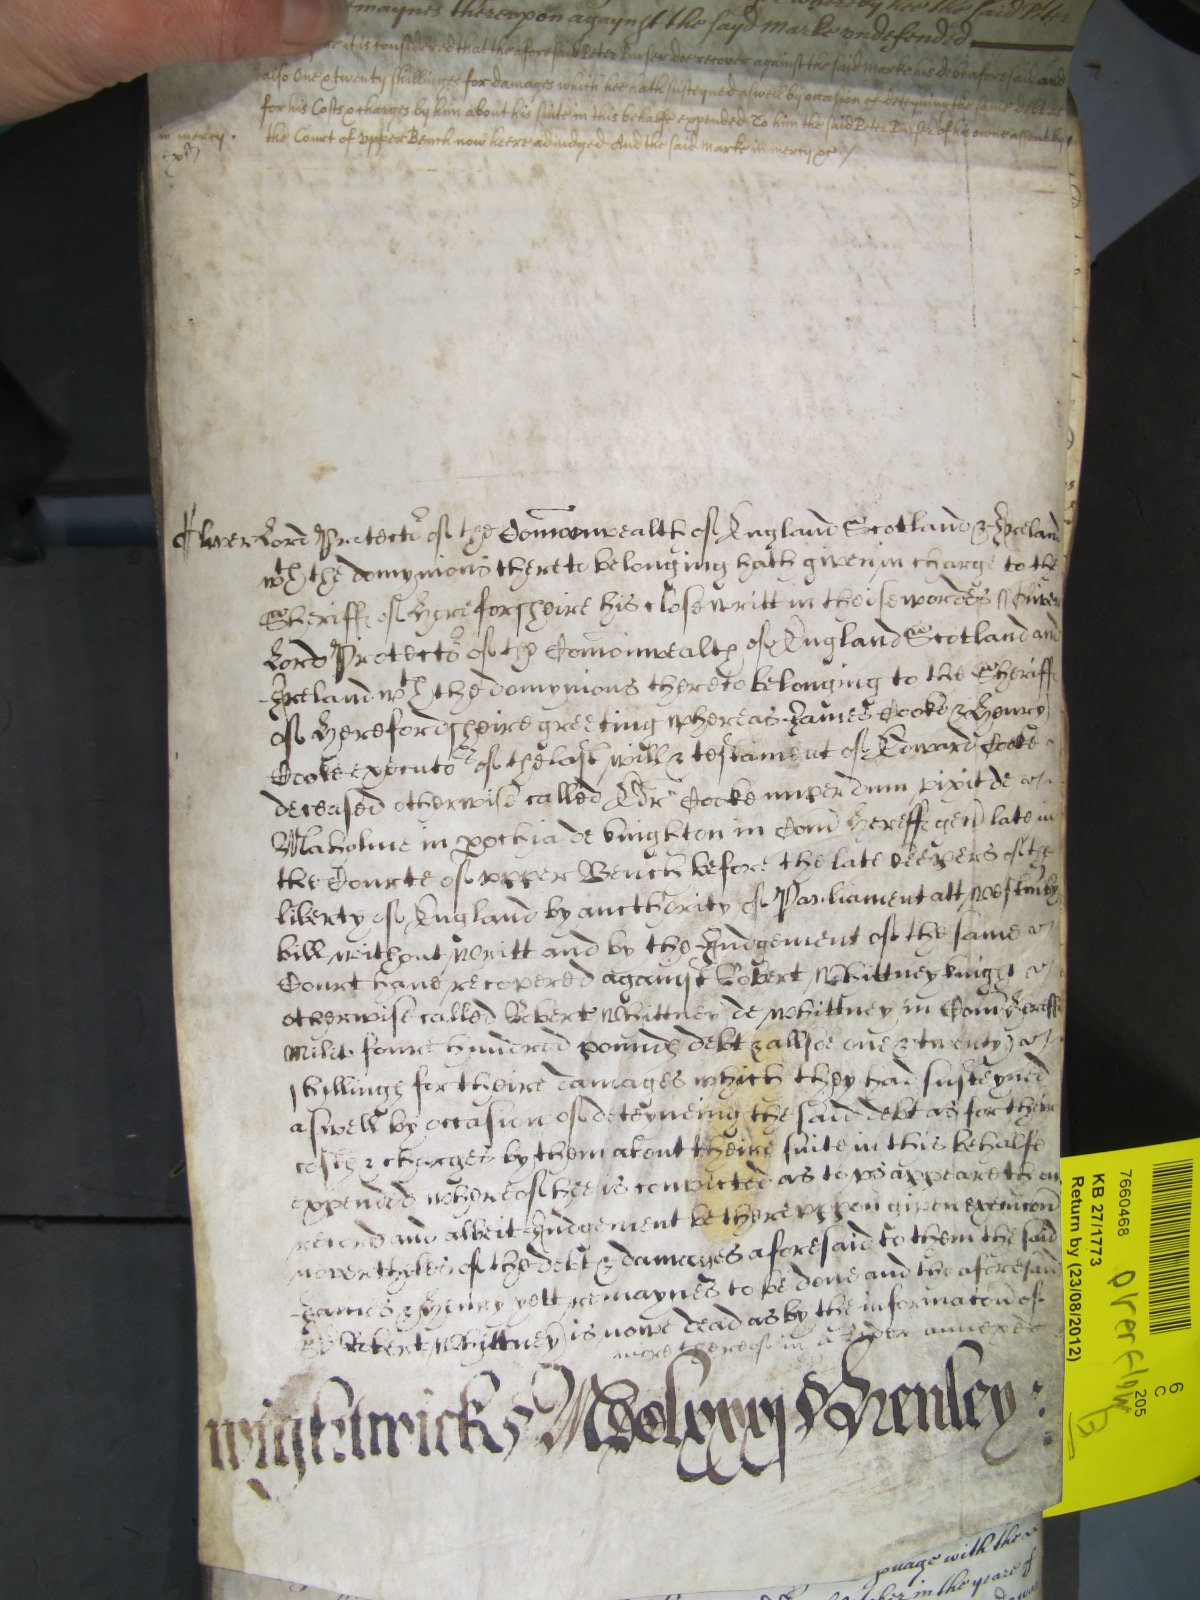 emaynes thereupon agaynst the sayd Marke undefended
it is considered that the aforesaid Peter Purser doe recover against the said Marke his debt aforesaid and
also One & twenty shillinges for damages which hee hath susteyned aswell by occasion of deteyning the same debt as
for his Costs & charges by him about his suite in this behalfe expended To him the said Peter Purser of his owne assent by
in mercy. the Court of Upper Bench now heere adiudged And the said Marke in mercy &c /
Oliver Lord Protector of the Comonwealth of England Scotland & Ireland
wth the domynions thereto belonging hath given in charge to the
Sheriffe of Herefordsheire his close writt in theise wordes Oliver
Lord Protector of the Comonwealth of England Scotland and
Ireland wth the domynions thereto belonging to the Sheriffe
of Herefordsheire greeting whereas James Cooke & Henry
Cooke executors of the last will & testament of Edward Cooke
deceased otherwise called Edr Cooke nuper dum vixit de
in pochia de Knighton in Com Hereff gen late in
the Courte of upper Bench before the late keepers of the
liberty of England by aucthority of Parliament att Westm by
bill without writt and by the Judgement of the same
Court have recovered against Robert Whittney knight
otherwise called Robert Whittney de Whittney in Com Hereff
Milit foure hundred pounds debt & allsoe one & twenty
shillings for theire damages which they had susteyned
aswell by occasion of deteyneing the said debt as for their
costs & charges by them about theire suite in this behalfe
expended whereof hee is convicted as to us appeareth on
record and albeit Judgement be thereuppon given execucion
neverthelesse of the debt & damages aforesaid to them the said
James & Henry yett remaynes to be done and the aforesaid
Robert Whittney is nowe dead as by the informacon of
more thereof in a Rider annexed
Wightwick Mdclxxxj Henley:
7660468
KB 27/1773
Return by (23/08/2012)
overflow
6
C
205
guage with the
in the yeare of